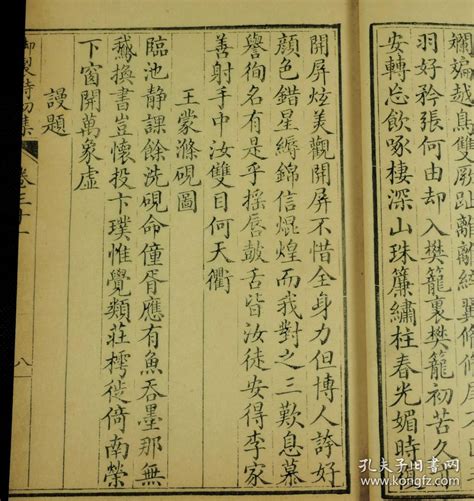 斕斒越鳥雙厥趾離離絳翼脩脩尾
羽好矜張何由却入樊籠裏樊籠初苦久
安轉忘飲啄棲深山珠簾繡柱春光媚時
開屏炫美觀開屏不惜全身力但博人誇好
顏色錯星縟錦信焜煌而我對之三歎息慕
譽徇名有是乎搖唇鼓舌皆汝徒安得李家
善射手中汝雙目何天衢
王蒙滌硯圖
臨池静課餘洗硯命僮胥應有魚吞墨那無
鵝換書豈懷投卞璞惟覺類莊樗徙倚南榮
下窗開萬象虛
謾題
御製詩初集 卷三十一 八
孔夫子旧书网
www.kongfz.com